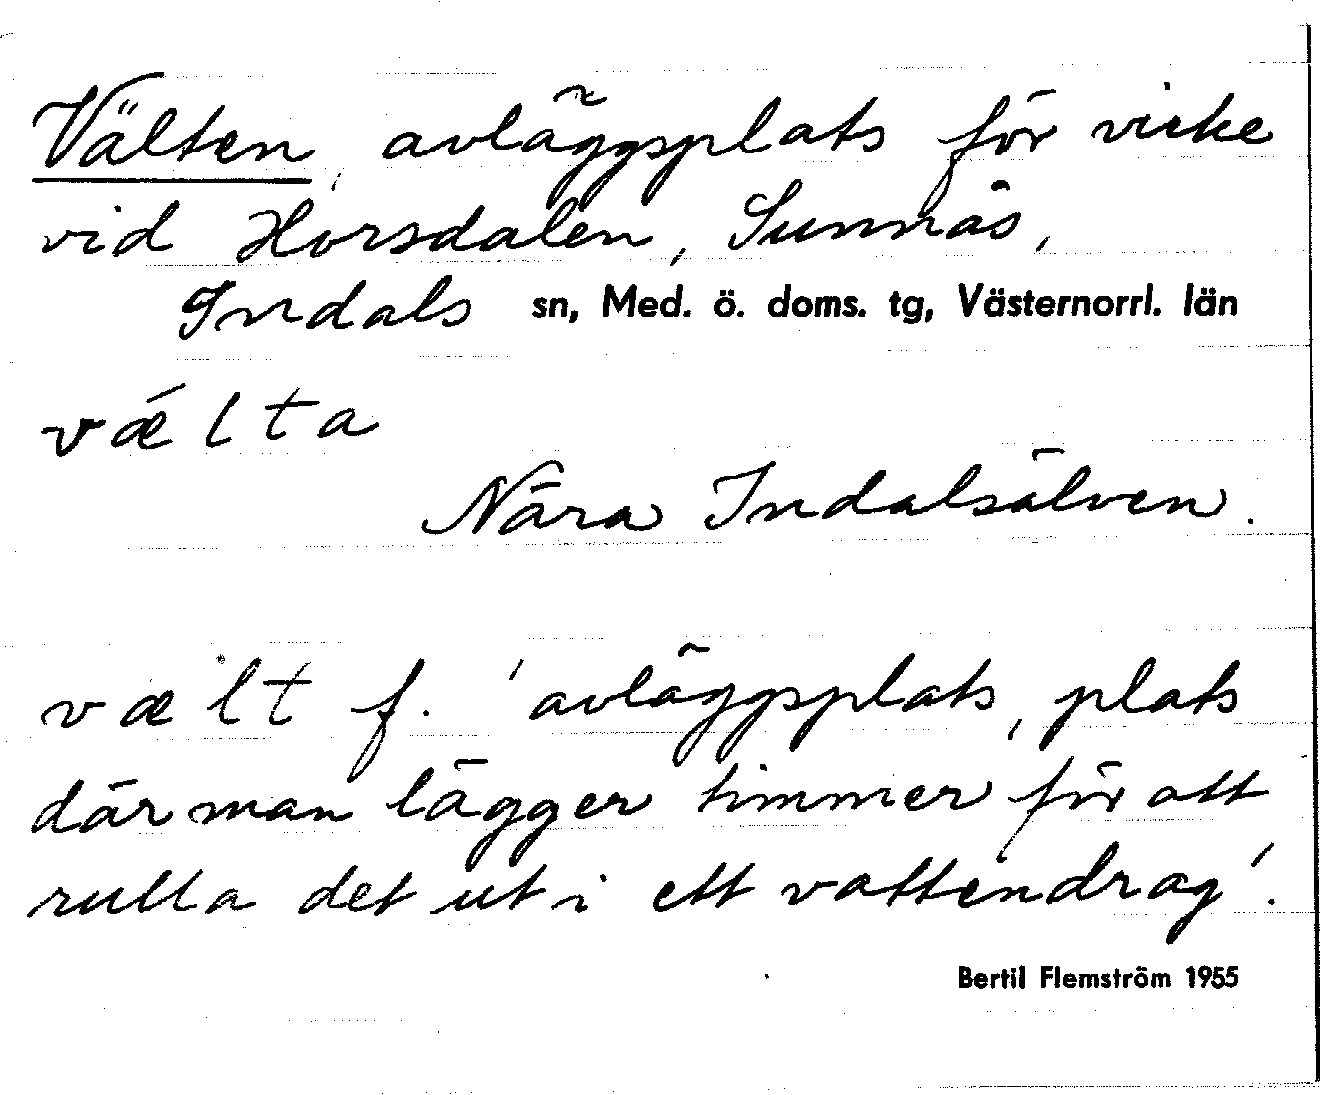 Välten, avläggsplats för virke
vid Horsdalen, Sunnås,
Indals sn, Med. ö. doms. tg, Västernorrl. län
vǽlta
Nära Indalsälven.
vælt f. 'avläggsplats, plats
där man lägger timmer för att
rulla det ut i ett vattendrag'.
Bertil Flemström 1955